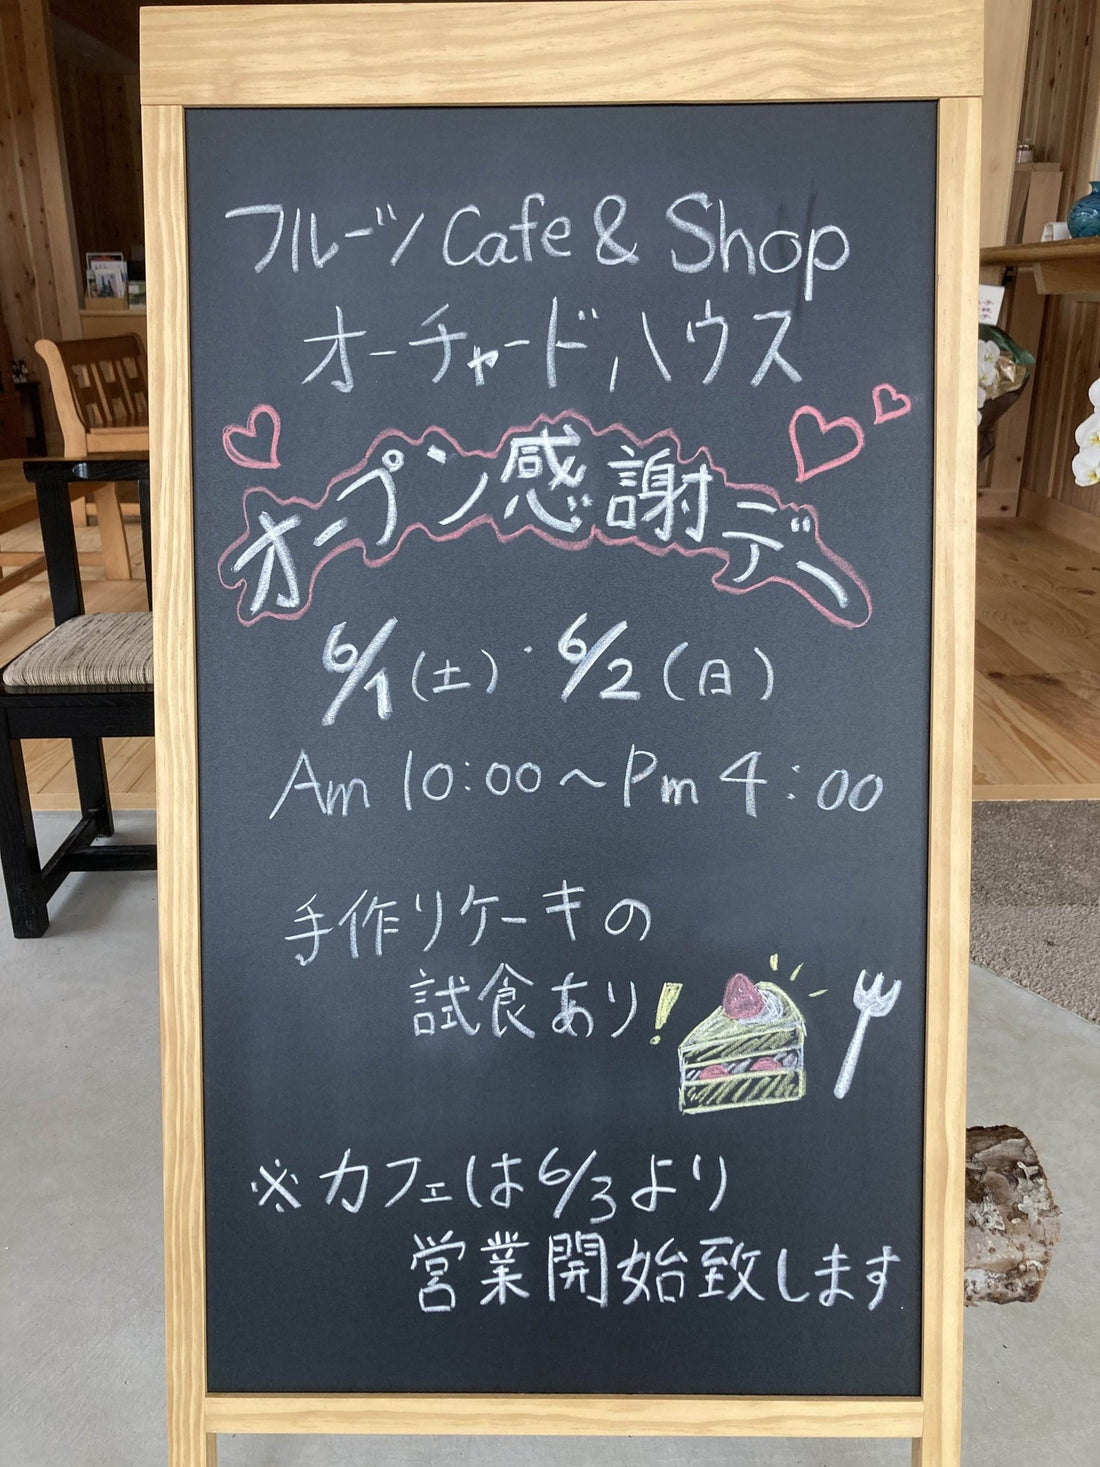 フルーツ Cafe & Shop
オーチャードハウス
オープン感謝デー
6/1(土)・6/2(日)
Am 10:00～Pm 4:00
手作りケーキの
試食あり!
※カフェは6/3より
営業開始致します